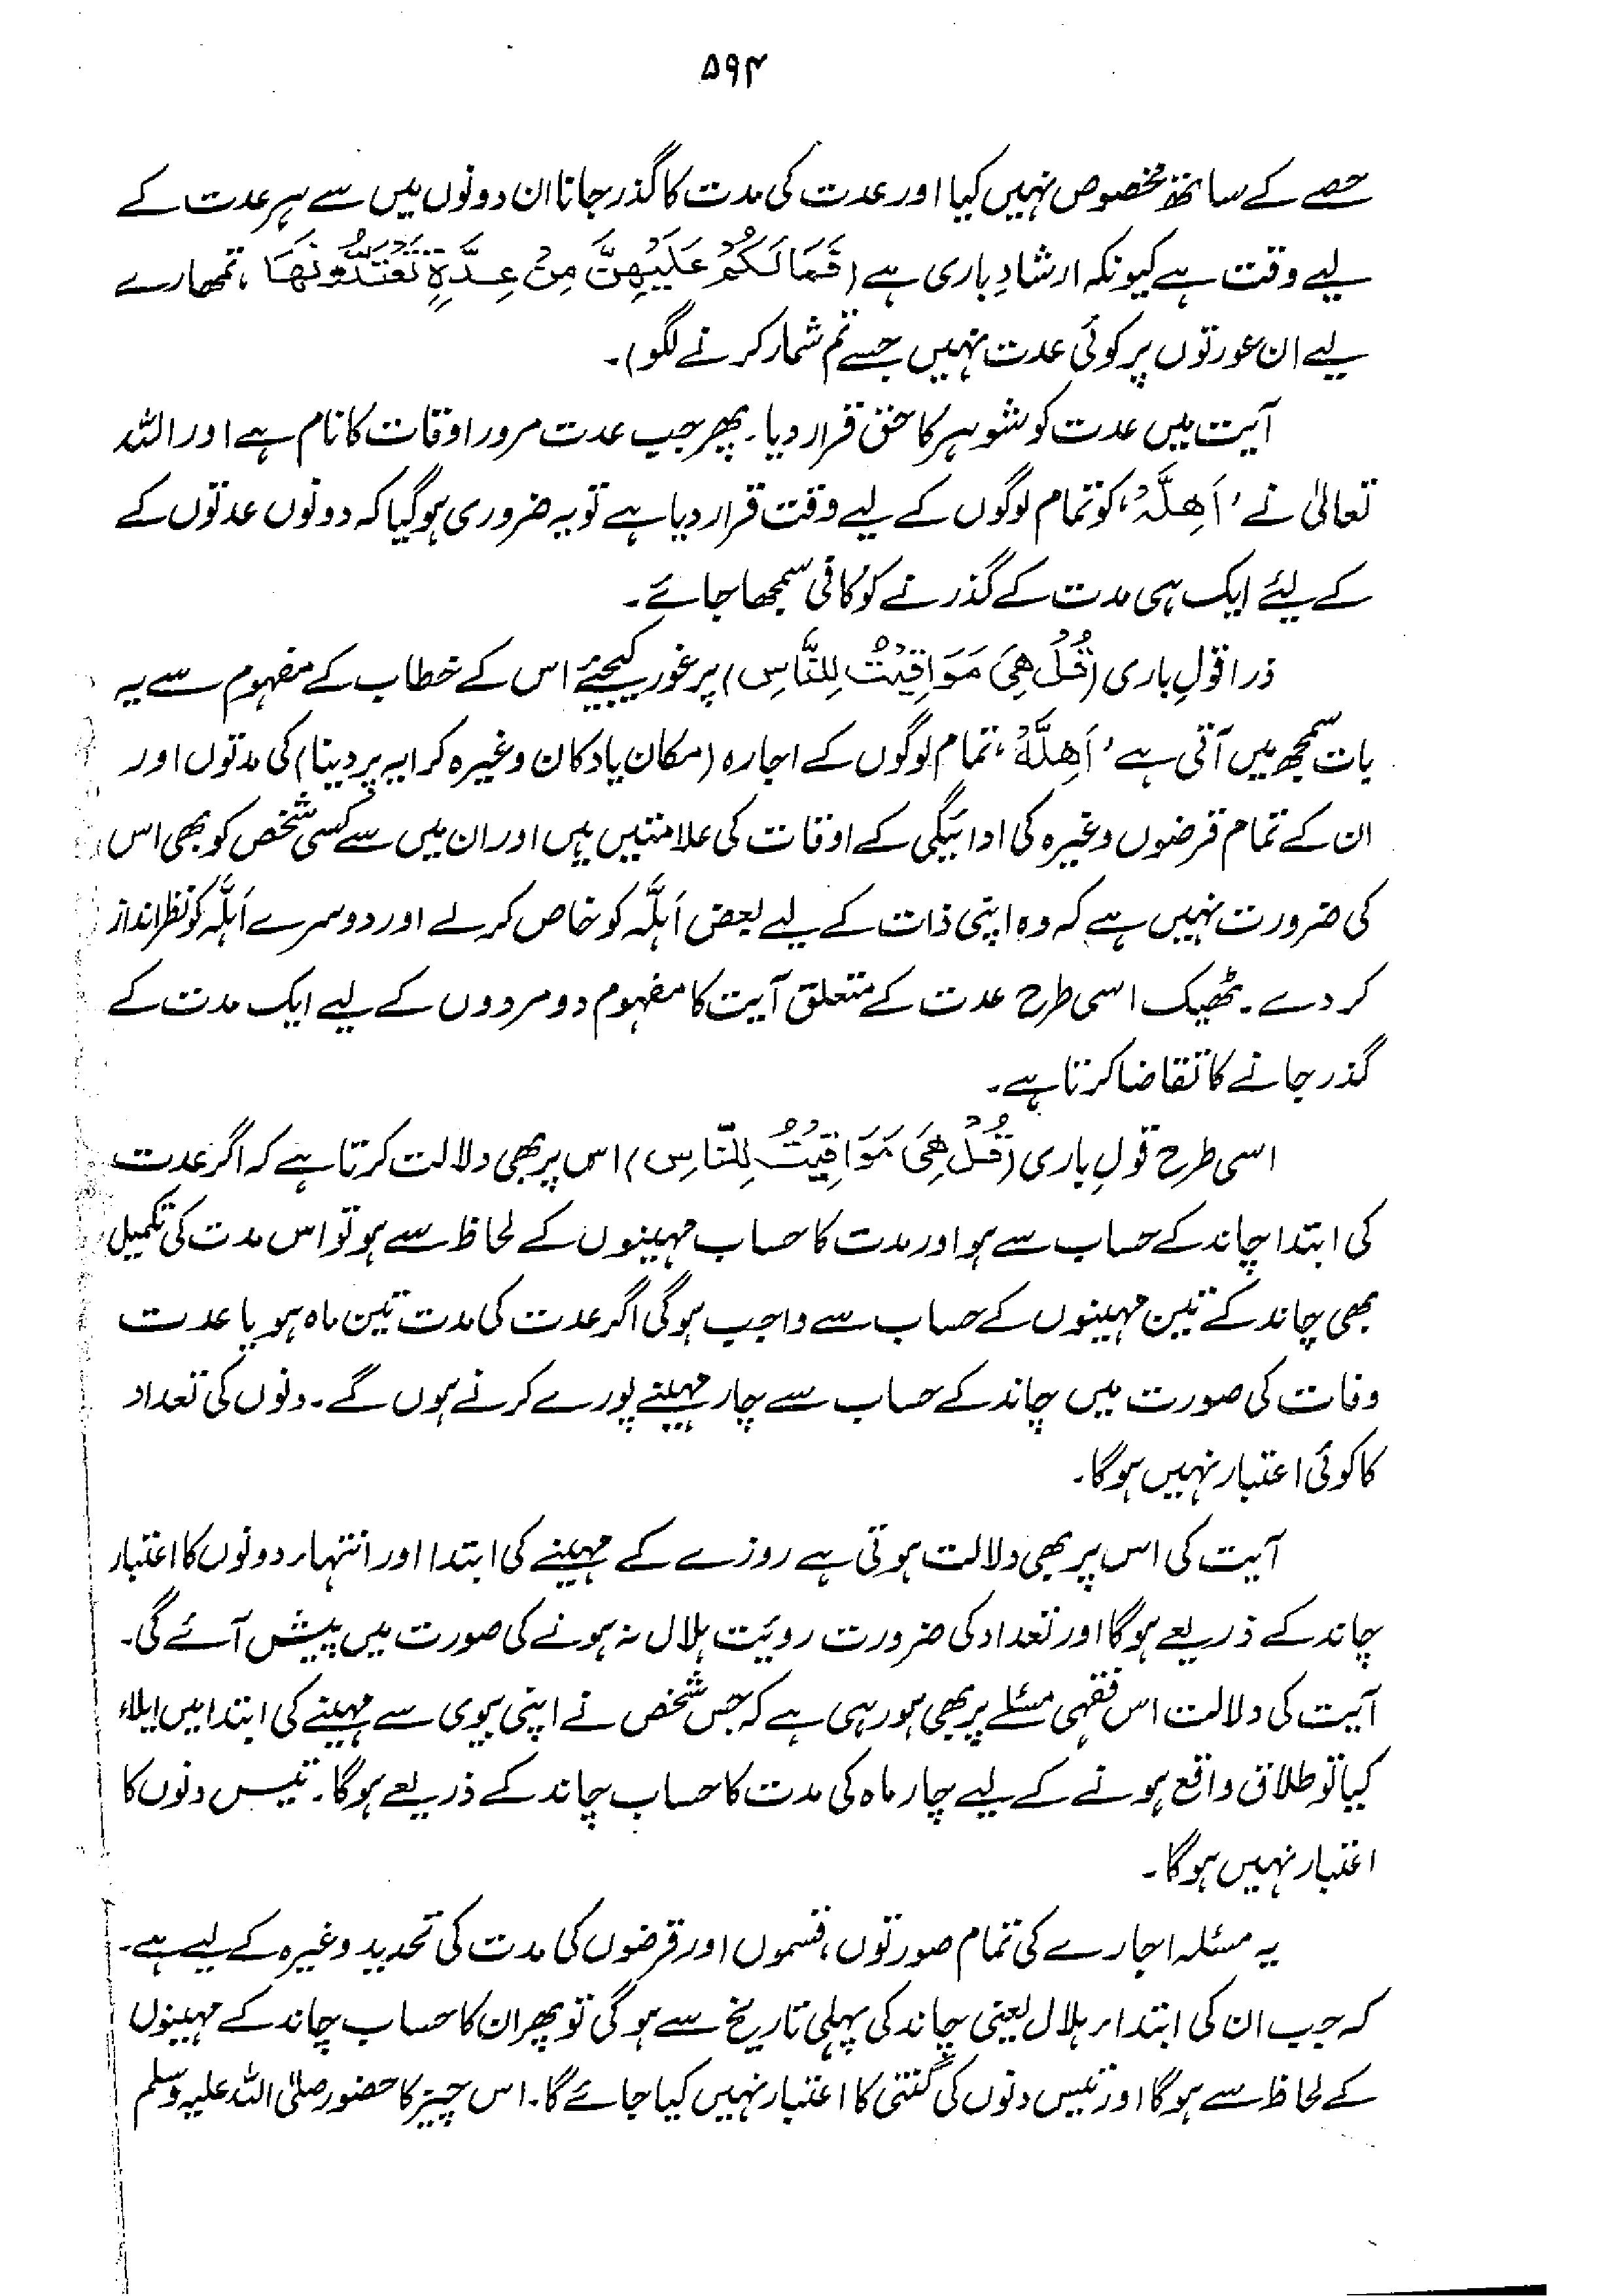 ۵۹۴
حصے کے ساتھ مخصوص نہیں کیا اور عدت کی مدت کا گذر جانا ان دونوں میں سے ہر عدت کے
لیے وقت ہے کیونکہ ارشادِ باری ہے (فَمَا لَکُمْ عَلَیْہِنَّ مِنْ عِدَّۃٍ تَعْتَدُّوْنَہَا، تمھارے
لیے ان عورتوں پر کوئی عدت نہیں جسے تم شمار کرنے لگو)۔
آیت میں عدت کو شوہر کا حق قرار دیا۔ پھر جب عدت مرور اوقات کا نام ہے اور اللہ
تعالیٰ نے ’اَھِلَّۃ‘، کو تمام لوگوں کے لیے وقت قرار دیا ہے تو یہ ضروری ہو گیا کہ دونوں عدتوں کے
کے لئے ایک ہی مدت کے گذرنے کو کافی سمجھا جائے۔
ذرا قولِ باری (قُلْ ھِیَ مَوَاقِیْتُ لِلنَّاسِ) پر غور کیجئے اس کے خطاب کے مفہوم سے یہ
بات سمجھ میں آتی ہے ’اَھِلَّۃ‘، تمام لوگوں کے اجارہ (مکان یا دکان وغیرہ کرایہ پر دینا) کی مدتوں اور
ان کے تمام قرضوں وغیرہ کی ادائیگی کے اوقات کی علامتیں ہیں اور ان میں سے کسی شخص کو بھی اس
کی ضرورت نہیں ہے کہ وہ اپنی ذات کے لیے بعض اَہلّہ کو خاص کر لے اور دوسرے اَہلّہ کو نظر انداز
کر دے۔ ٹھیک اسی طرح عدت کے متعلق آیت کا مفہوم دو مردوں کے لیے ایک مدت کے
گذر جانے کا تقاضا کرتا ہے۔
اسی طرح قولِ باری (قُلْ ھِیَ مَوَاقِیْتُ لِلنَّاسِ) اس پر بھی دلالت کرتا ہے کہ اگر عدت
کی ابتدا چاند کے حساب سے ہو اور مدت کا حساب مہینوں کے لحاظ سے ہو تو اس مدت کی تکمیل
بھی چاند کے تین مہینوں کے حساب سے واجب ہوگی اگر عدت کی مدت تین ماہ ہو یا عدت
وفات کی صورت میں چاند کے حساب سے چار مہینے پورے کرنے ہوں گے۔ دنوں کی تعداد
کا کوئی اعتبار نہیں ہوگا۔
آیت کی اس پر بھی دلالت ہوتی ہے روزے کے مہینے کی ابتدا اور انتہاء دونوں کا اعتبار
چاند کے ذریعے ہوگا اور تعداد کی ضرورت روئیت ہلال نہ ہونے کی صورت میں پیش آئے گی۔
آیت کی دلالت اس فقہی مسئلے پر بھی ہو رہی ہے کہ جس شخص نے اپنی بیوی سے مہینے کی ابتدا میں ایلاء
کیا تو طلاق واقع ہونے کے لیے چار ماہ کی مدت کا حساب چاند کے ذریعے ہوگا۔ تیس دنوں کا
اعتبار نہیں ہوگا۔
یہ مسئلہ اجارے کی تمام صورتوں، قسموں اور قرضوں کی مدت کی تحدید وغیرہ کے لیے ہے۔
کہ جب ان کی ابتداء ہلال یعنی چاند کی پہلی تاریخ سے ہوگی تو پھر ان کا حساب چاند کے مہینوں
کے لحاظ سے ہوگا اور تیس دنوں کی گنتی کا اعتبار نہیں کیا جائے گا۔ اس چیز کا حضور صلی اللہ علیہ وسلم